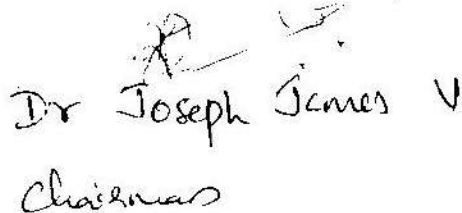 Dr Joseph James V
Chairman